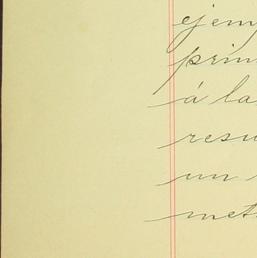 ejem
prim
á la
resu
un
met